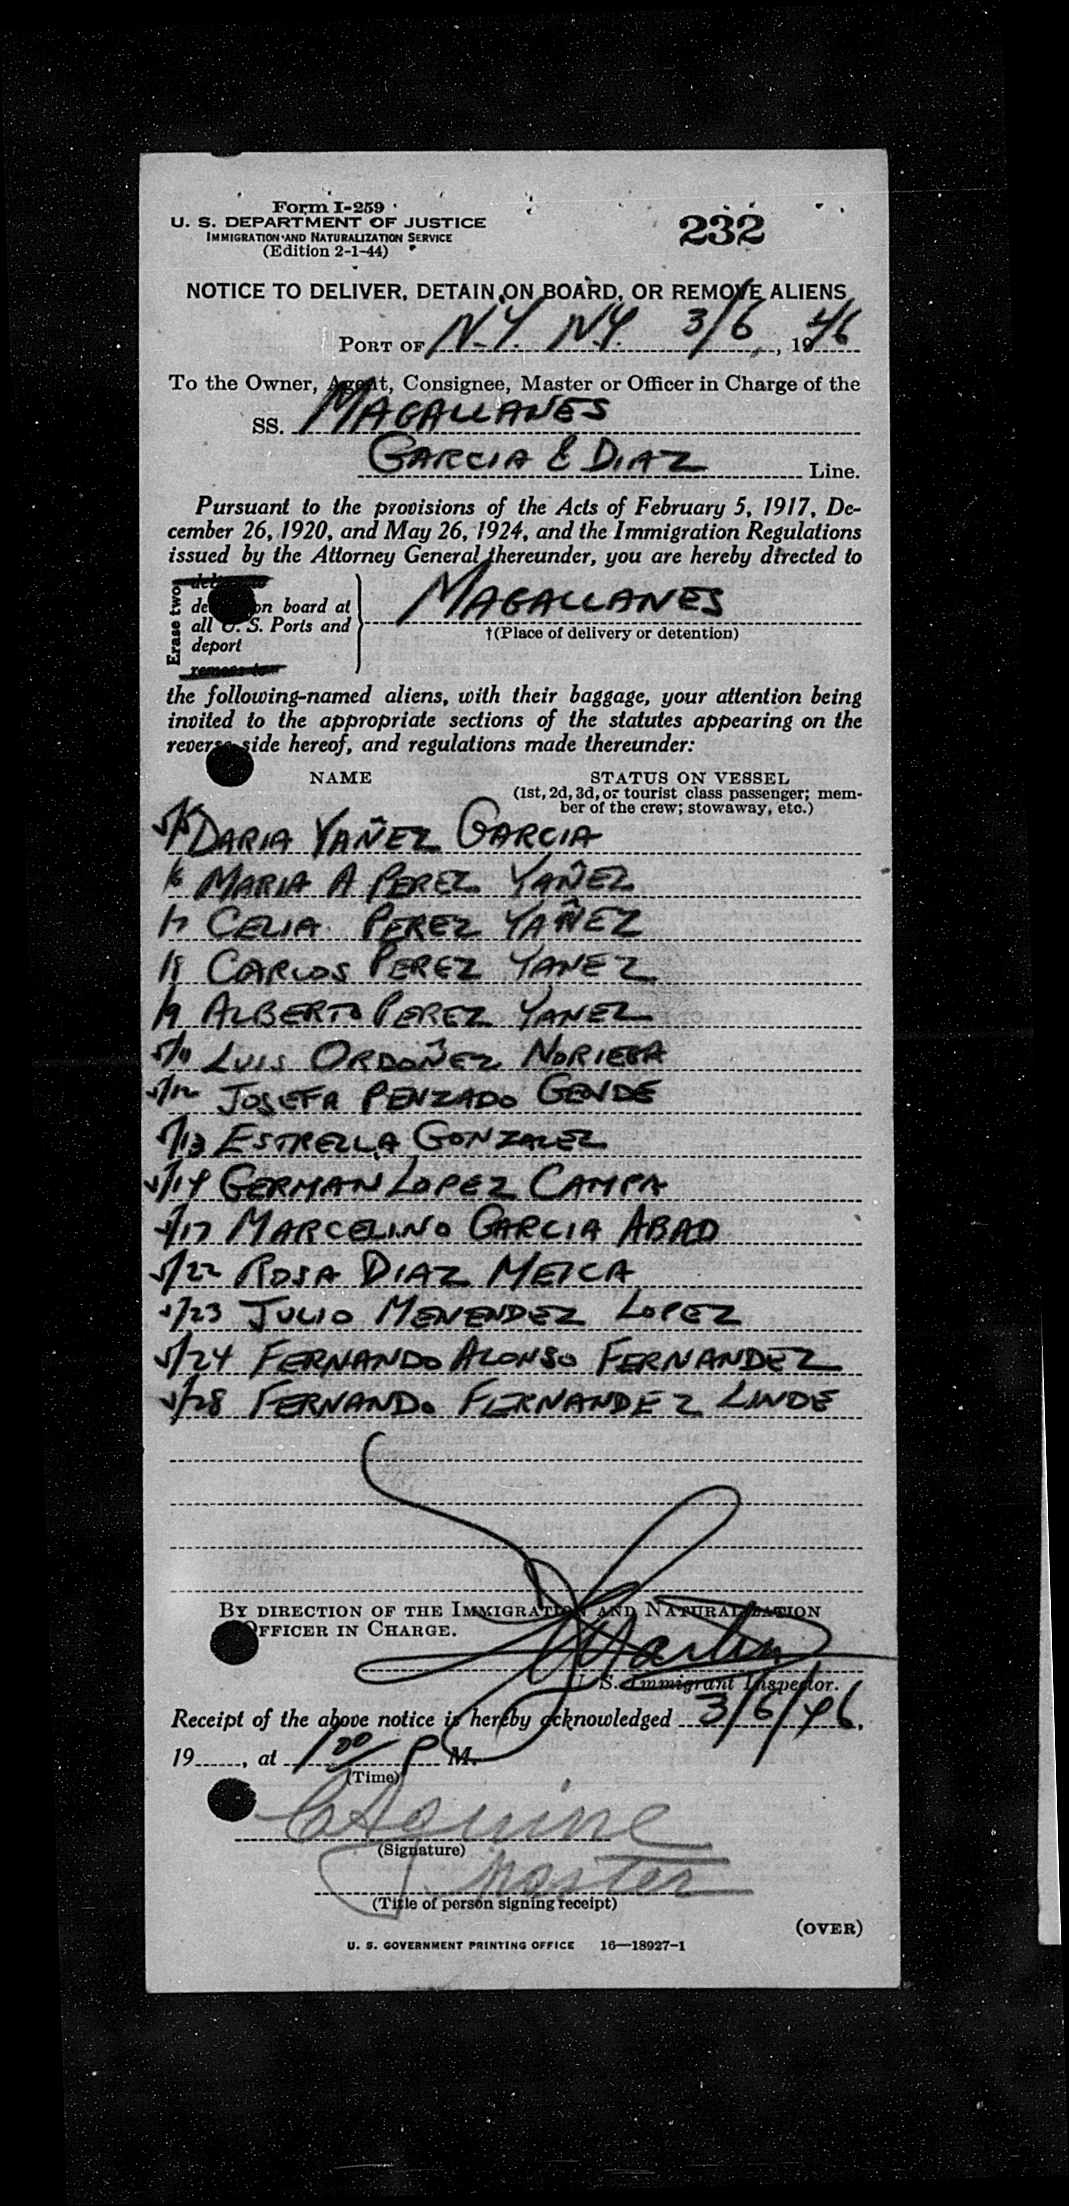 Form I-259
U. S. DEPARTMENT OF JUSTICE
IMMIGRATION AND NATURALIZATION SERVICE
(Edition 2-1-44)
232
NOTICE TO DELIVER, DETAIN ON BOARD, OR REMOVE ALIENS
PORT OF N.Y. N.Y. 3/6, 1946
To the Owner, Agent, Consignee, Master or Officer in Charge of the
SS. MAGALLANES
GARCIA & DIAZ Line.
Pursuant to the provisions of the Acts of February 5, 1917, De-
cember 26, 1920, and May 26, 1924, and the Immigration Regulations
issued by the Attorney General thereunder, you are hereby directed to
Erase two
on board at
all U. S. Ports and
deport
MAGALLANES
†(Place of delivery or detention)
the following-named aliens, with their baggage, your attention being
invited to the appropriate sections of the statutes appearing on the
reverse side hereof, and regulations made thereunder:
NAME
STATUS ON VESSEL
(1st, 2d, 3d, or tourist class passenger; mem-
ber of the crew; stowaway, etc.)
DARIA YAÑEZ GARCIA
/6 MARIA A PEREZ YAÑEZ
/7 CELIA PEREZ YAÑEZ
/8 CARLOS PEREZ YANEZ
/9 ALBERTO PEREZ YANEZ
/11 LUIS ORDOÑEZ NORIEGA
/12 JOSEFA PENZADO GENDE
/13 ESTRELLA GONZALEZ
/14 GERMAN LOPEZ CAMPA
/17 MARCELINO GARCIA ABAD
/22 ROSA DIAZ MEICA
/23 JULIO MENENDEZ LOPEZ
/24 FERNANDO ALONSO FERNANDEZ
/28 FERNANDO FERNANDEZ LINDE
BY DIRECTION OF THE IMMIGRATION AND NATURALIZATION
OFFICER IN CHARGE.
Martin
U. S. Immigrant Inspector.
Receipt of the above notice is hereby acknowledged 3/6/46,
19......, at 1 00/ P M.
(Time)
(Signature)
Master
(Title of person signing receipt)
(OVER)
U. S. GOVERNMENT PRINTING OFFICE 16—18927-1